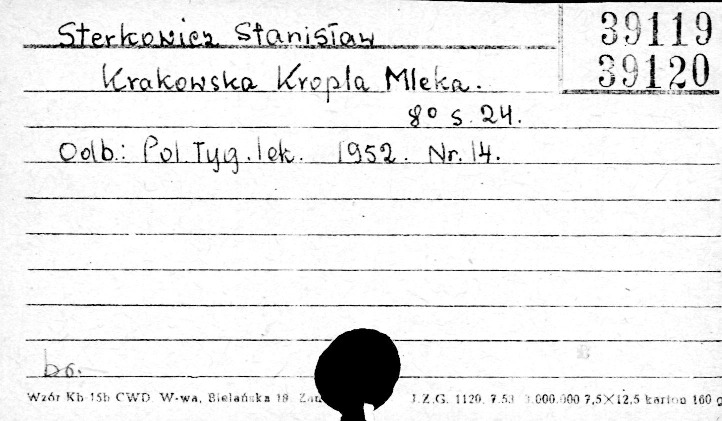 Sterkowicz Stanisław
39119
39120
Krakowska Kropla Mleka.
8° s. 24.
Odb.: Pol. Tyg. lek. 1952. Nr. 14.
bo.
Wzór Kb-15b CWD W-wa, Bielańska 18 Zam J.Z.G. 1120. 7.53 3.000.000 7,5×12,5 karton 160 g